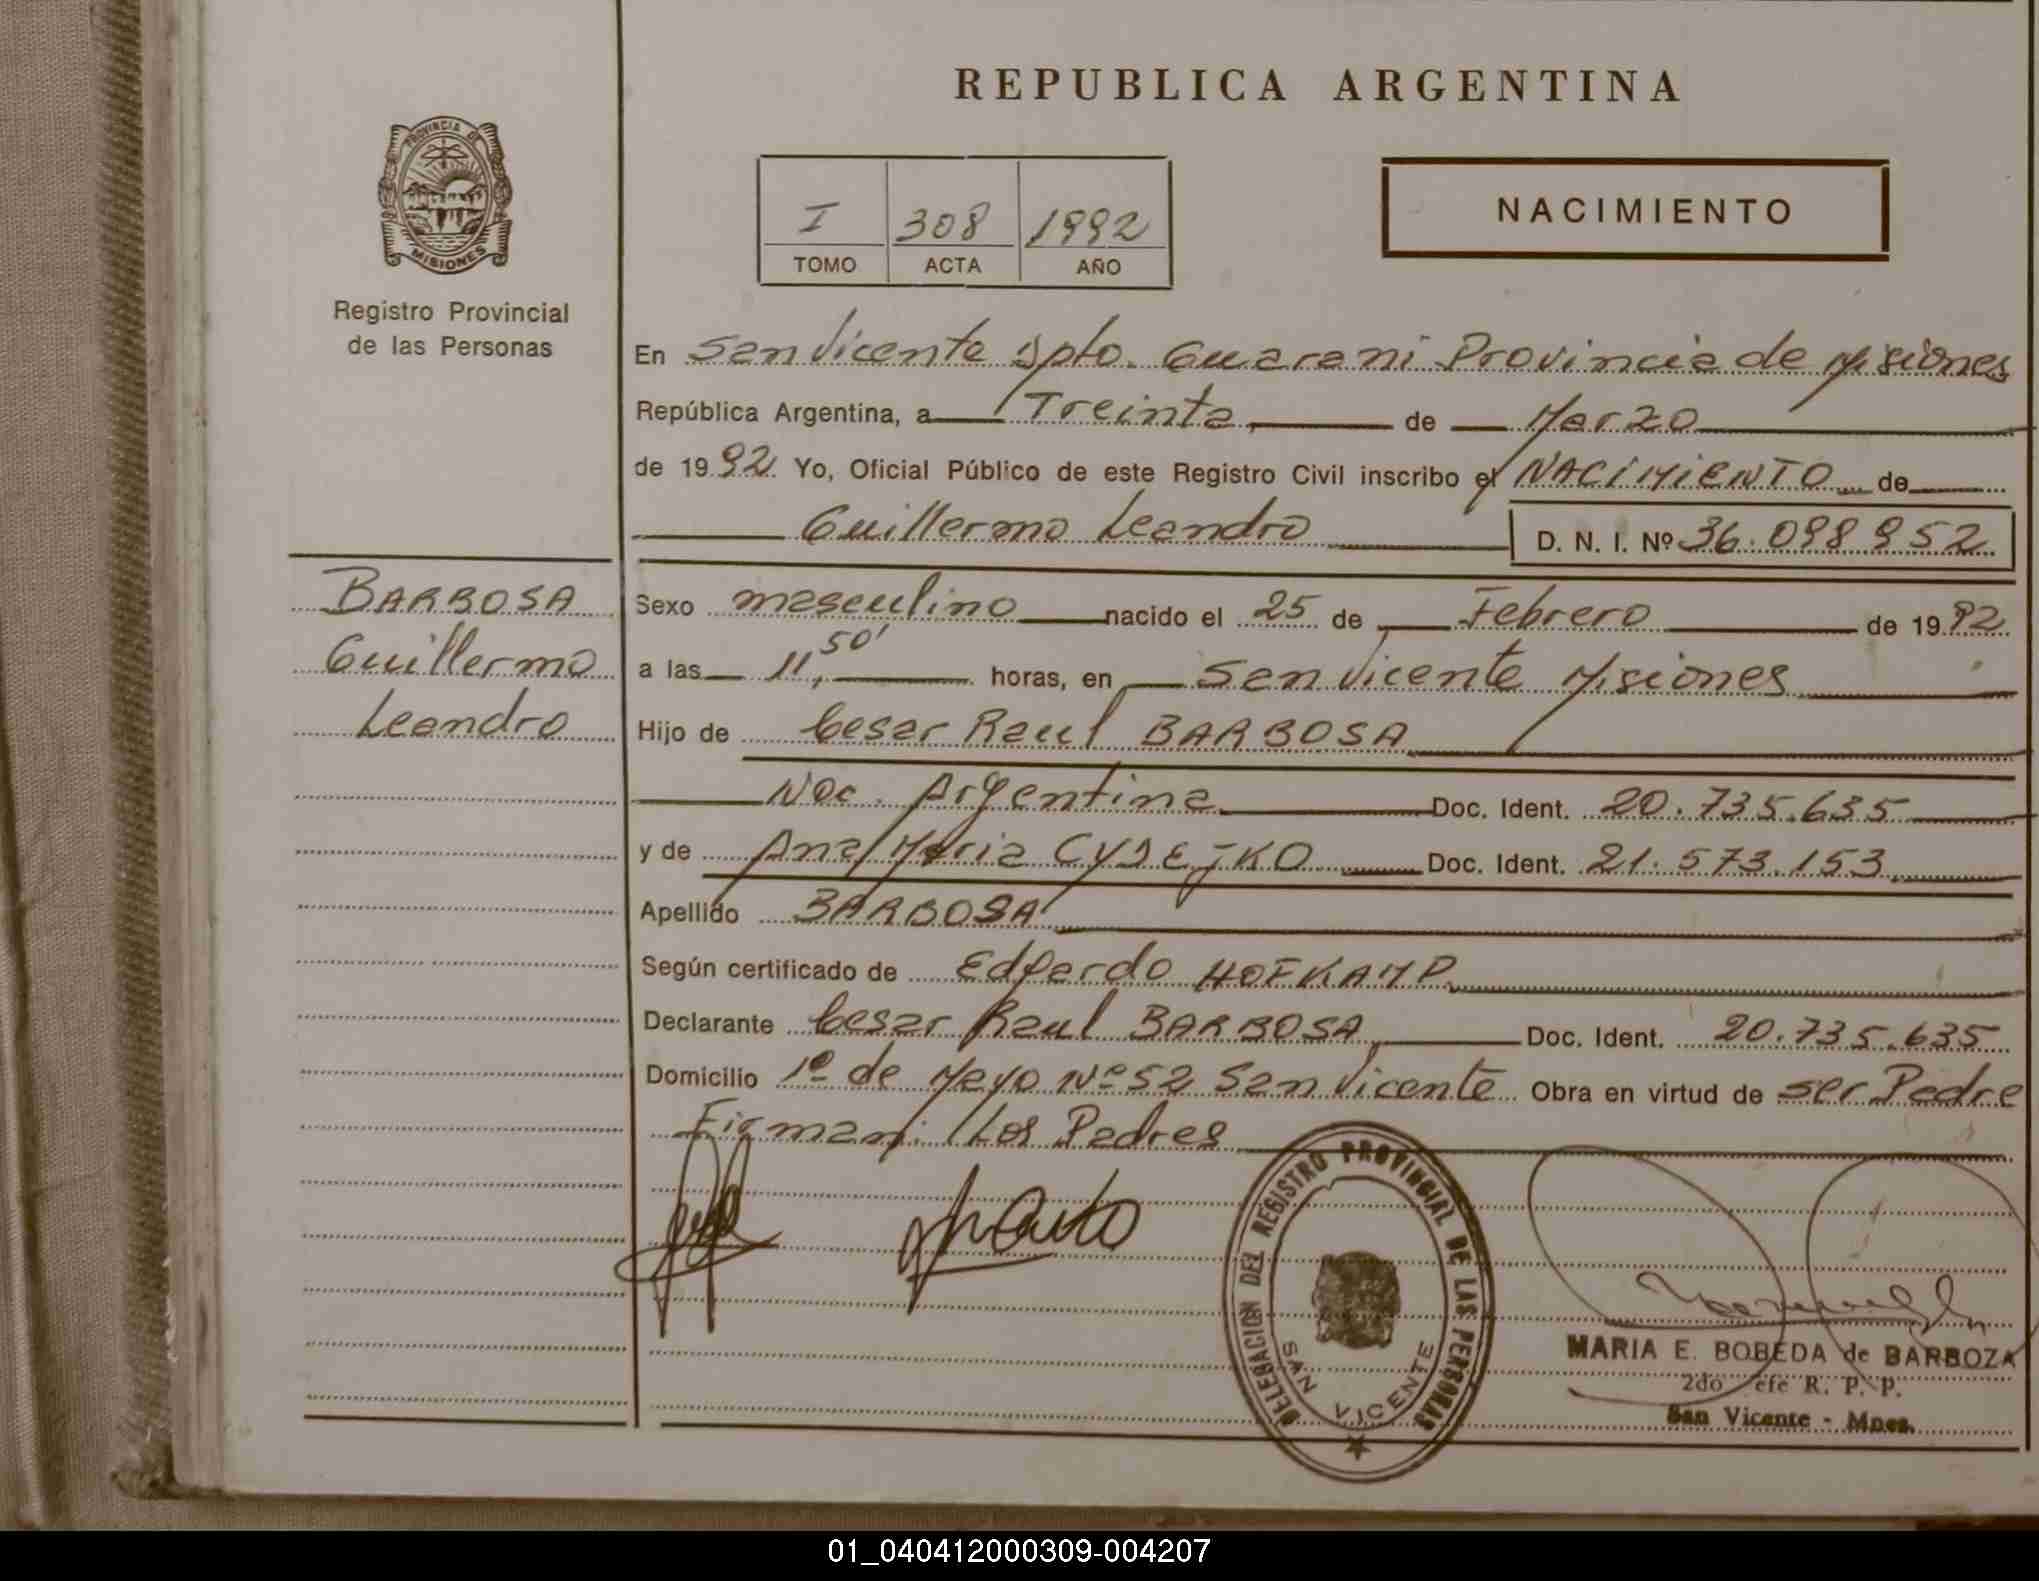 REPUBLICA ARGENTINA
PROVINCIA DE
MISIONES
Registro Provincial
de las Personas
I 308 1992
TOMO ACTA AÑO
NACIMIENTO
En San Vicente Dpto. Guarani Provincia de Misiones
República Argentina, a Treinta de Marzo
de 1992. Yo, Oficial Público de este Registro Civil inscribo el NACIMIENTO de
Guillermo Leandro D. N. I. Nº 36.098 952
BARBOSA
Guillermo
Leandro
Sexo masculino nacido el 25 de Febrero de 1992
a las 11,50' horas, en San Vicente Misiones
Hijo de Cesar Raul BARBOSA
Nac. Argentina Doc. Ident. 20.735.635
y de Ana Maria CYDEJKO Doc. Ident. 21.573.153
Apellido BARBOSA
Según certificado de Edgardo HOFKAMP
Declarante Cesar Raul BARBOSA Doc. Ident. 20.735.635
Domicilio 1º de Mayo Nº 52 San Vicente Obra en virtud de ser Padre
Firman: Los Padres
DELEGACION DEL REGISTRO PROVINCIAL DE LAS PERSONAS
SAN VICENTE
MARIA E. BOBEDA de BARBOZA
2do Jefe R. P. P.
San Vicente - Mnes.
01_040412000309-004207